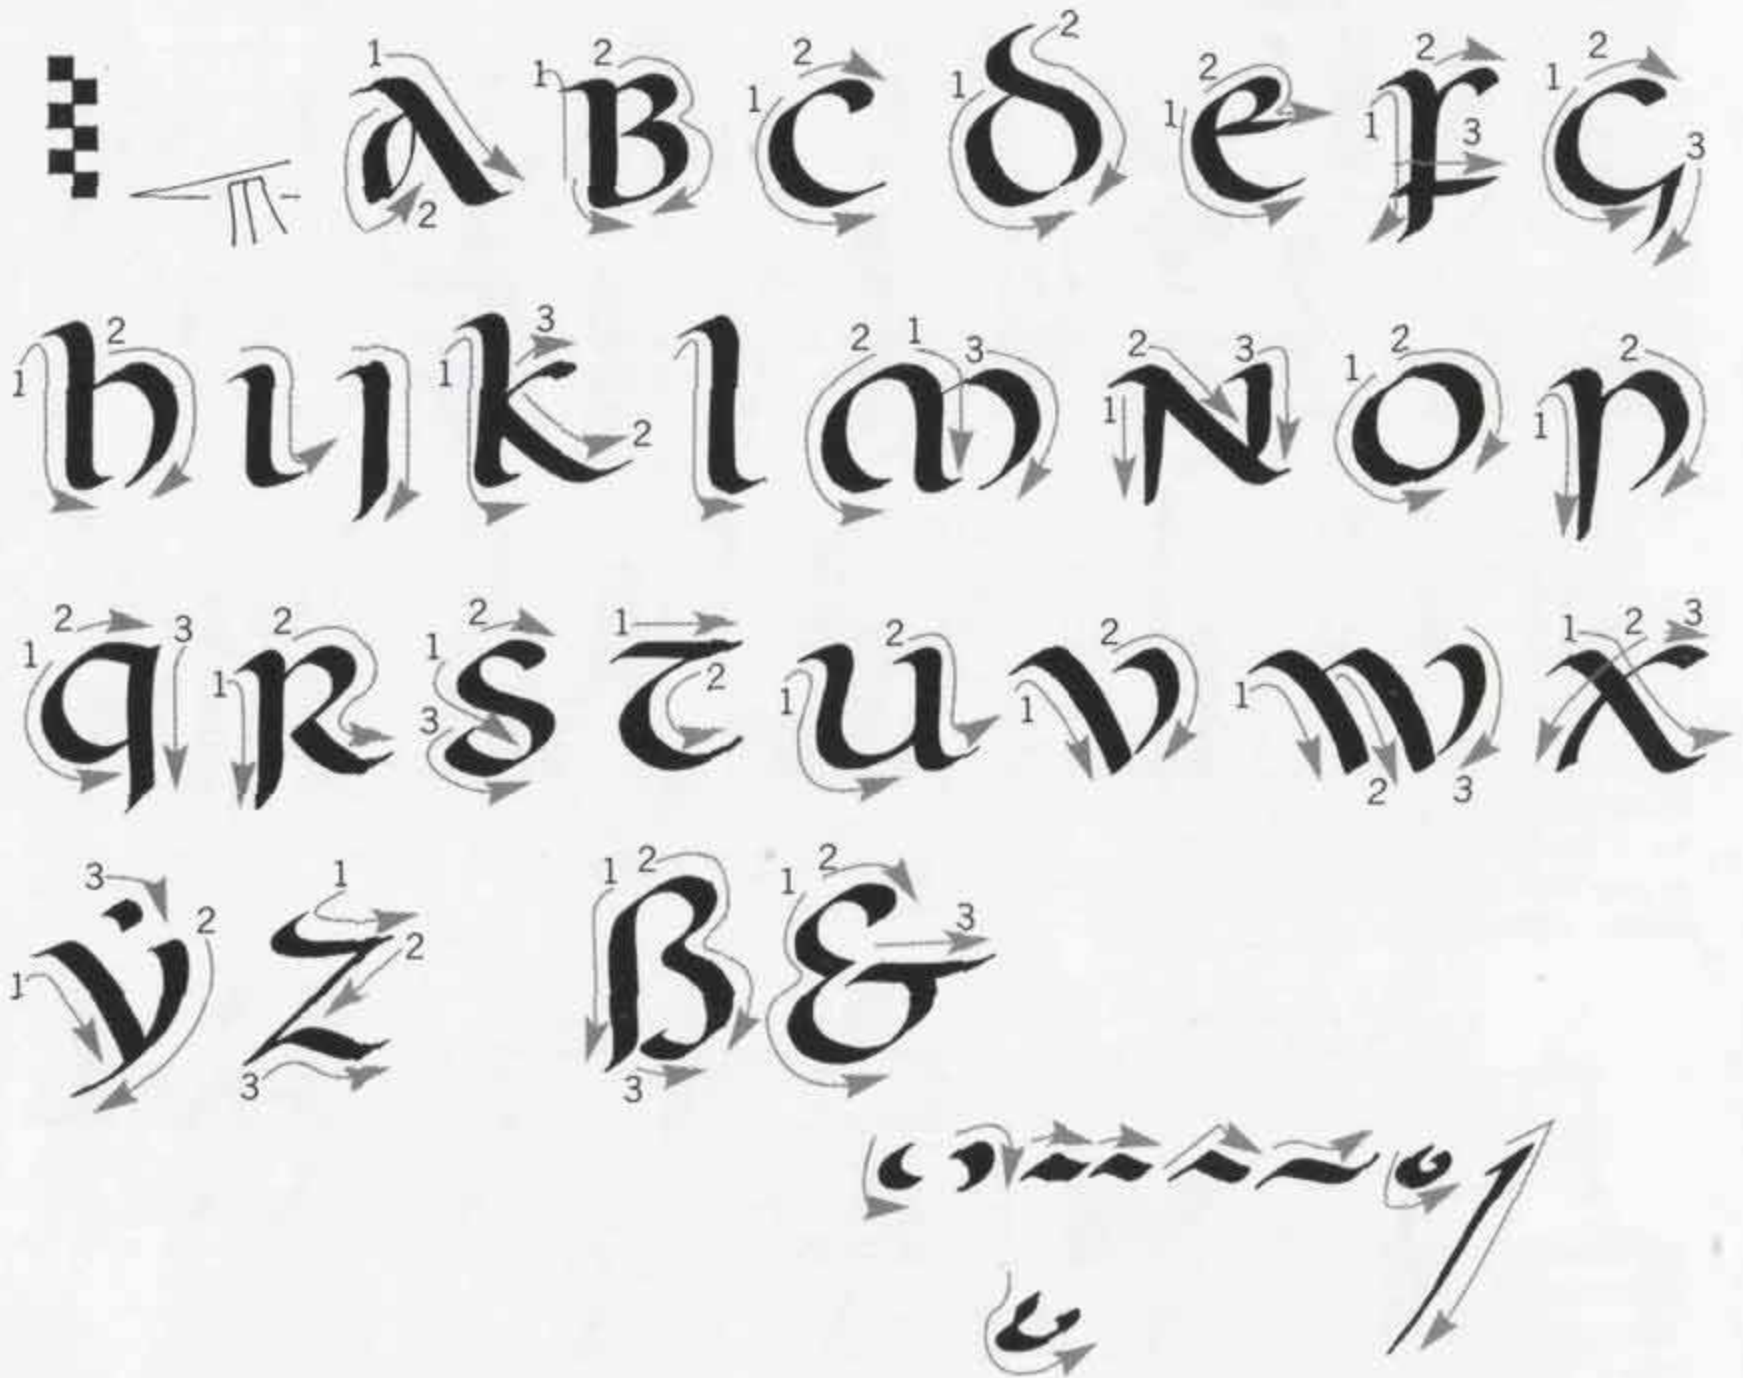 a B c d e f G
h i j k l m N o p
q R s t u v w x
ẏ z ß &